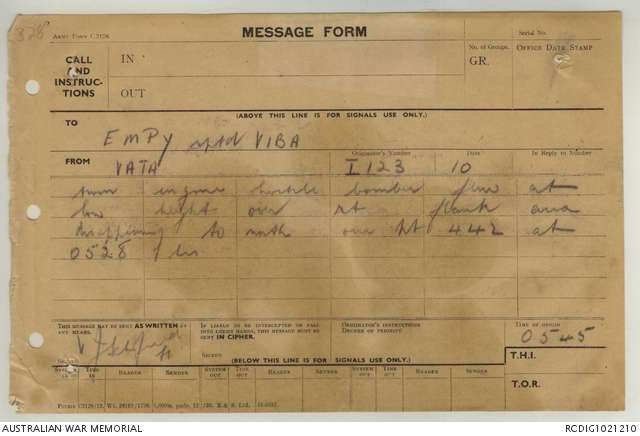 328
ARMY FORM C2128
MESSAGE FORM
Serial No.
CALL AND INSTRUCTIONS
IN
OUT
No. of Groups.
GR.
OFFICE DATE STAMP
(ABOVE THIS LINE IS FOR SIGNALS USE ONLY.)
TO
EMPY rptd VIBA
FROM
Originator's Number
Date
In Reply to Number
VATA I123 10
twin engine hostile bomber flew at
low height over rt flank area
disappearing to north over ht 442 at
0528 hrs
THIS MESSAGE MAY BE SENT AS WRITTEN BY ANY MEANS.
IF LIABLE TO BE INTERCEPTED OR FALL INTO ENEMY HANDS, THIS MESSAGE MUST BE SENT IN CIPHER.
ORIGINATOR'S INSTRUCTIONS
DEGREE OF PRIORITY
TIME OF ORIGIN
0545
SIGNED
(BELOW THIS LINE IS FOR SIGNALS USE ONLY.)
T.H.I.
SYSTEM IN TIME IN READER SENDER SYSTEM OUT TIME OUT READER SENDER SYSTEM OUT TIME OUT READER SENDER
T.O.R.
AUSTRALIAN WAR MEMORIAL
RCDIG1021210